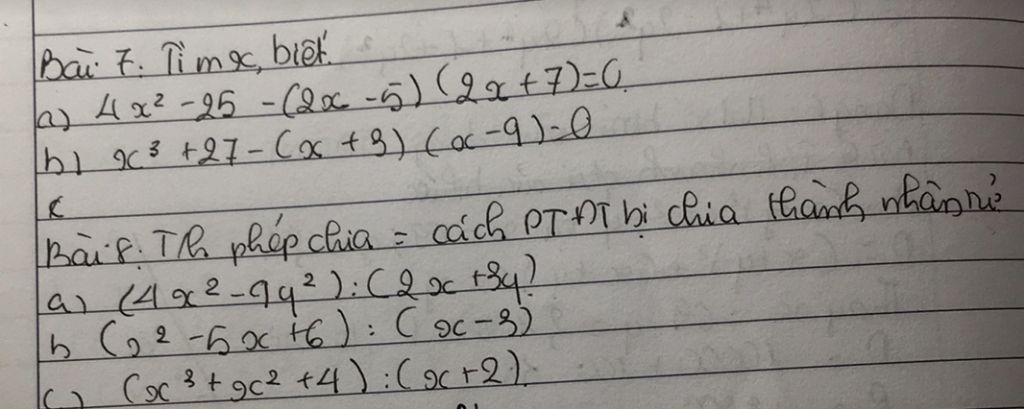 Bài 7. Tìm x, biết.
a) 4x² - 25 - (2x - 5) (2x + 7) = 0.
b) x³ + 27 - (x + 3) (x - 9) = 0
c
Bài 8: Th phép chia = cách PTĐT bị chia thành nhân tử
a) (4x² - 9y²) : (2x + 3y)
b (x² - 5x + 6) : (x - 3)
c) (x³ + x² + 4) : (x + 2).